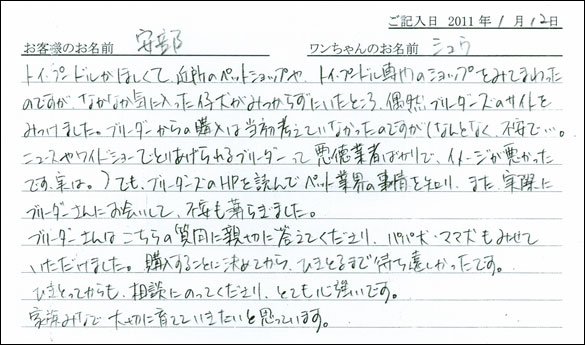 ご記入日 2011年1月12日
お客様のお名前 安部 ワンちゃんのお名前 ミュウ
トイ・プードルがほしくて、近所のペットショップや、トイ・プードル専門のショップをみてまわった
のですが、なかなか気に入った仔犬がみつからずにいたところ、偶然、ブリーダーズのサイトを
みつけました。ブリーダーからの購入は当初考えていなかったのですが(なんとなく、不安で…。
ニュースやワイドショーでとりあげられるブリーダーって悪徳業者ばかりで、イメージが悪かった
です、実は。)でも、ブリーダーズのHPを読んでペット業界の事情を知り、また、実際に
ブリーダーさんにお会いして、不安も落ちきました。
ブリーダーさんはこちらの質問に親切に答えてくださり、パパ犬・ママ犬もみせて
いただけました。購入することに決めてから、ひきとるまで待ち遠しかったです。
ひきとってからも、相談にのってくださり、とても心強いです。
家族みなで大切に育てていきたいと思っています。